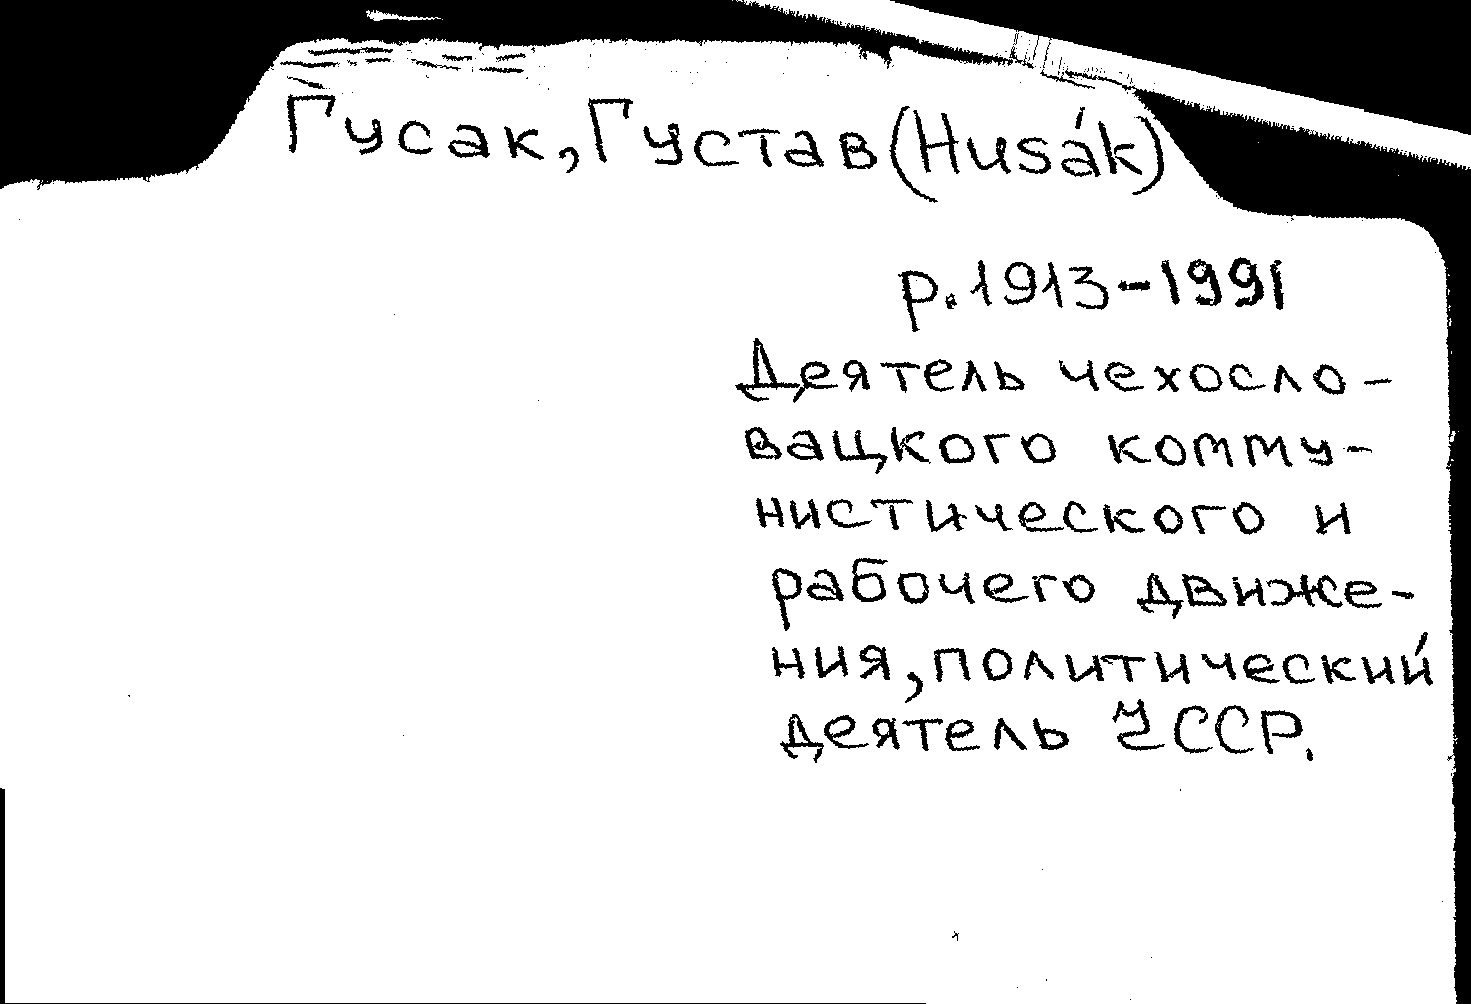 Гусак, Густав (Husák)
р. 1913-1991
Деятель чехосло-
вацкого комму-
нистического и
рабочего движе-
ния, политический
деятель ЧССР.